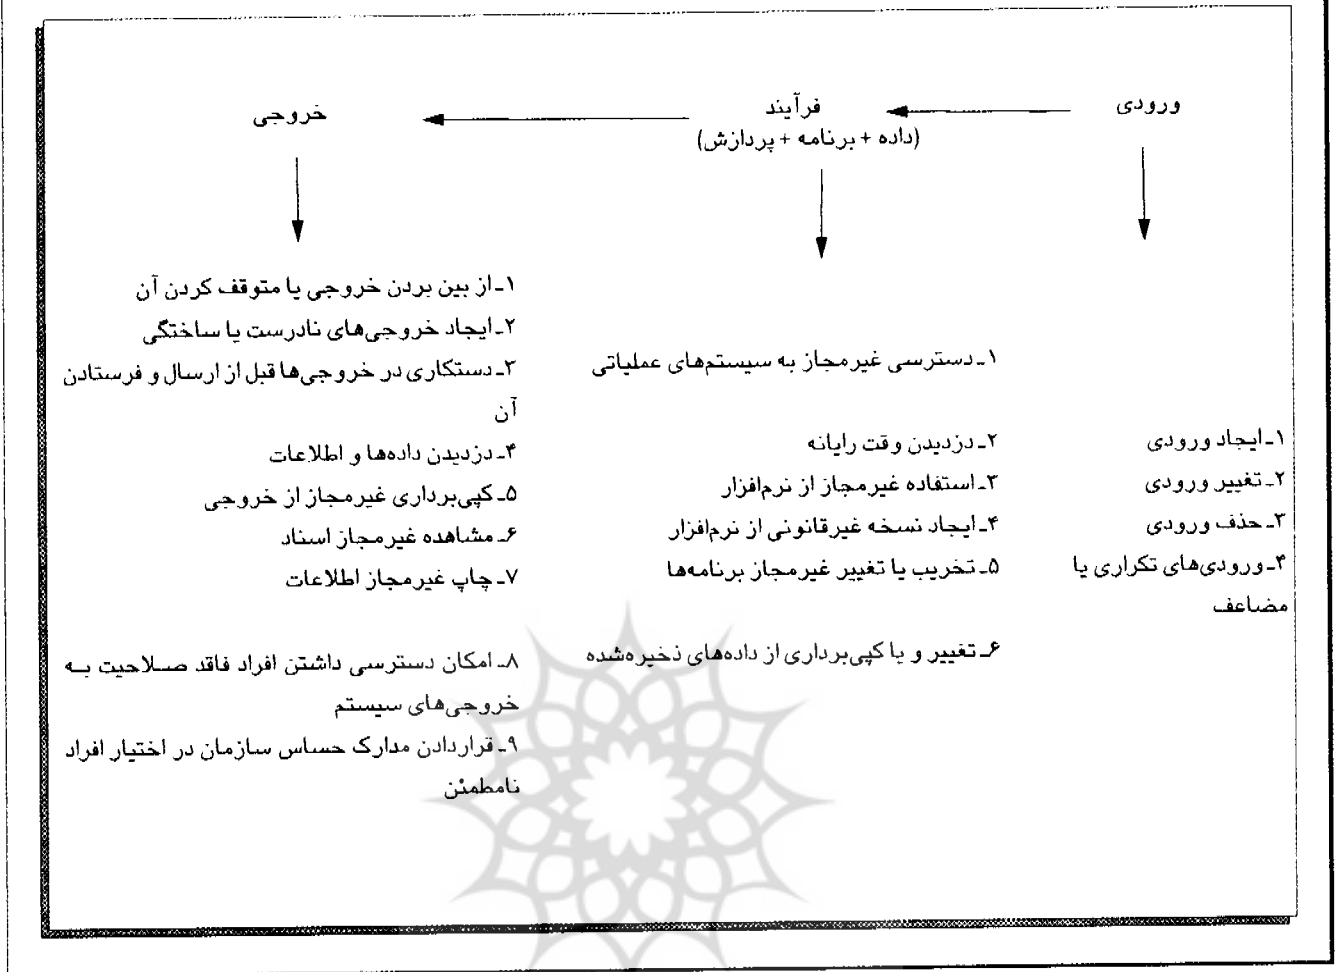 ورودی
فرآیند
(داده + برنامه + پردازش)
خروجی
۱ـ ایجاد ورودی
۲ـ تغییر ورودی
۳ـ حذف ورودی
۴ـ ورودی‌های تکراری یا
مضاعف
۱ـ دسترسی غیرمجاز به سیستم‌های عملیاتی
۲ـ دزدیدن وقت رایانه
۳ـ استفاده غیرمجاز از نرم‌افزار
۴ـ ایجاد نسخه غیرقانونی از نرم‌افزار
۵ـ تخریب یا تغییر غیرمجاز برنامه‌ها
۶ـ تغییر و یا کپی‌برداری از داده‌های ذخیره‌شده
۱ـ از بین بردن خروجی یا متوقف کردن آن
۲ـ ایجاد خروجی‌های نادرست یا ساختگی
۳ـ دستکاری در خروجی‌ها قبل از ارسال و فرستادن
آن
۴ـ دزدیدن داده‌ها و اطلاعات
۵ـ کپی‌برداری غیرمجاز از خروجی
۶ـ مشاهده غیرمجاز اسناد
۷ـ چاپ غیرمجاز اطلاعات
۸ـ امکان دسترسی داشتن افراد فاقد صلاحیت به
خروجی‌های سیستم
۹ـ قراردادن مدارک حساس سازمان در اختیار افراد
نامطمئن